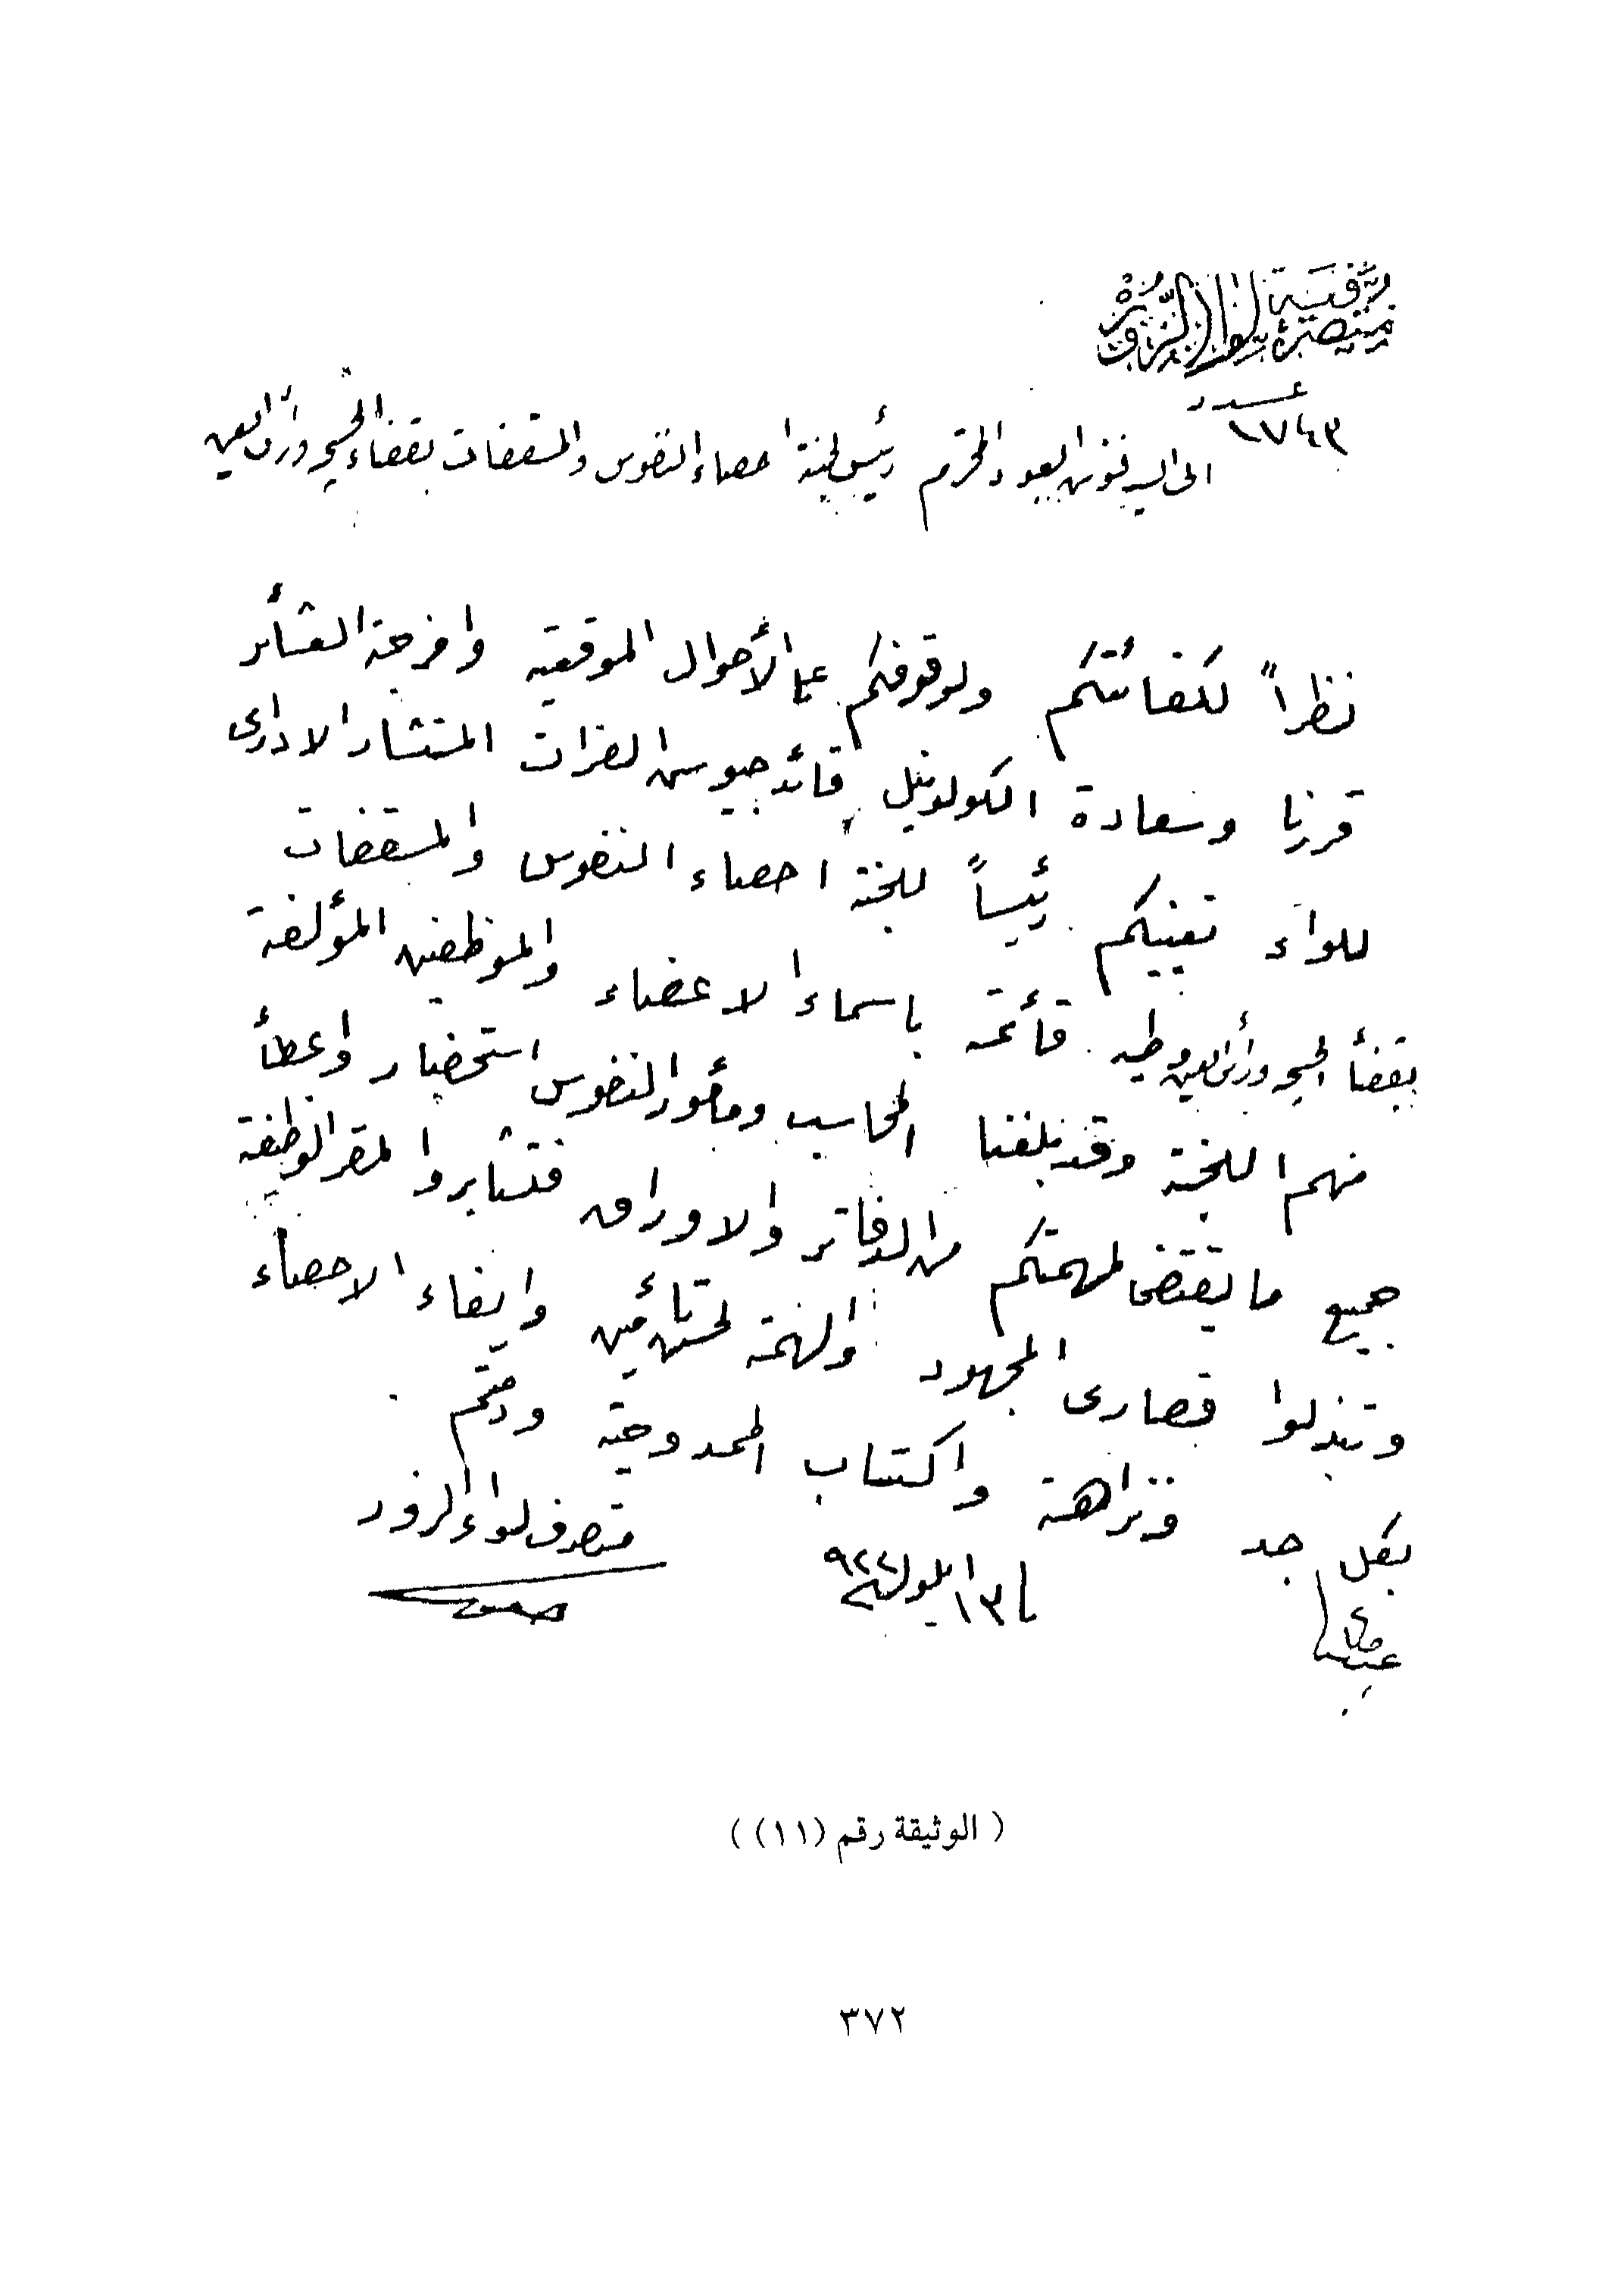 متصرفية لواء الزور
عدد
١٧٤٣
الى السيد فنوش العبود المحترم رئيس لجنة احصاء النفوس والمسقفات بقضاء الحسجه ورأس العين
نظراً لكفائتكم ولوقوفكم على الأحوال الموقعيه وامزجة العشائر
قررنا وسعادة الكولونيل قائد جيوش الفرات المستشار الادارى
للواء تعيينكم رئيساً للجنة احصاء النفوس والمسقفات
بقضأ الحسجه ورأس العين وطيه قائمه باسماء الاعضاء والموظفين المؤلفة
منهم اللجنة وقد بلغنا المحاسب ومأمور النفوس استحضار واعطأ
جميع ما يقتضى لمهمتكم من الدفاتر والاوراق فتثابروا لمقر الوظيفة
وتبذلوا قصارى المجهود والهمة لحسن تأمين وايفاء الاحصاء
بكل جد ونزاهة واكتساب الممدوحية ودمتم
متصرف لواء الزور
١٣ ايلول سنة ٩٢٢
( الوثيقة رقم (١١) )
٣٧٢